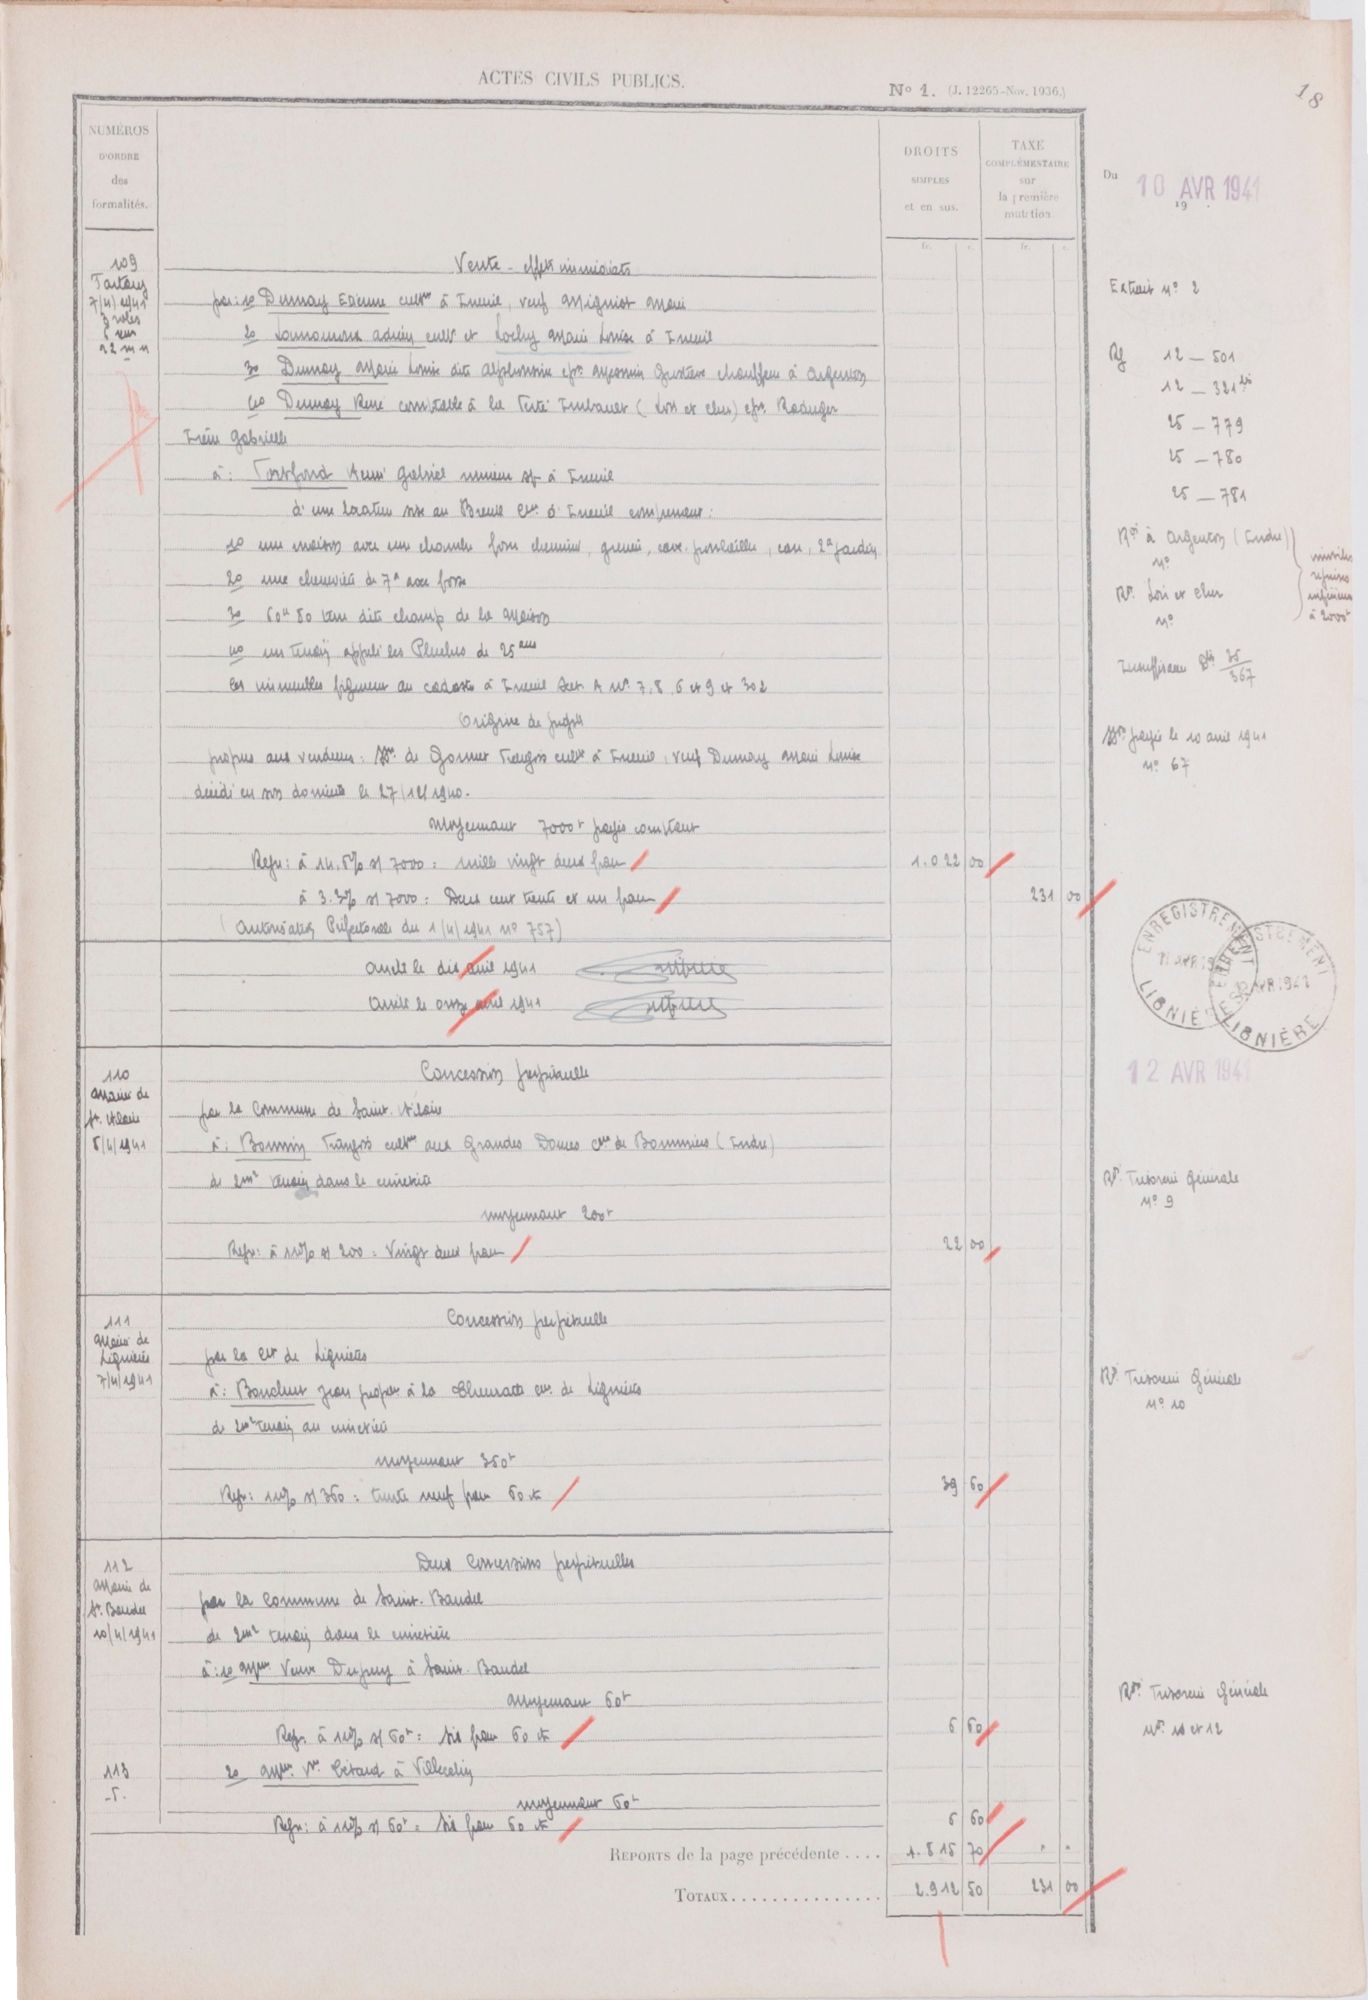 ACTES CIVILS PUBLICS.
Nº 1. (J. 12265-Nov. 1936.)
18
NUMÉROS
D'ORDRE
des
formalités.
DROITS
SIMPLES
et en sus.
TAXE
COMPLÉMENTAIRE
sur
la première
mutation
fr. c. fr. c.
Du 10 AVR 1941
19
109
7/4/1941
3 rôles
22 m n
Vente - effets immédiats
par: 1º Dumay Etienne cultr à Ineuil, veuf Mignot Marie
2º adrien cultr et Marie Louise à Ineuil
3º Dumay Marie Louise dite Alphonsine eps Gustave chauffeur à Argenton
4º Dumay René comptable à la Ferté Imbault (Loir et Cher) eps
Irène Gabrielle
à: Torsfond Henri Gabriel à Ineuil
d'une locature sise au Breuil Cne d'Ineuil comprenant:
1º une maison avec une chambre four cheminée, grenier, cave, cour, 2a jardin
2º une chenevière de 7a avec fosse
3º 60a 80 terre dite champ de la Maison
4º un terrain appelé les de 25 ares
Ces immeubles figurent au cadastre à Ineuil Sect. A nº 7, 8, 6 et 9 et 302
Origine de propté
propres aux vendeurs: son de cultr à Ineuil, veuf Dumay Marie Louise
décédé en son domicile le 27/12/1940.
Moyennant 7000f payés comptant
Repr: à 14.6% s/ 7000: mille vingt deux francs
1.022 00
à 3.3% s/ 7000: Deux cent trente et un francs
231 00
(Autorisation Préfectorale du 1/4/1941 nº 757)
Arrêté le dix avril 1941
Arrêté le onze avril 1941
Extrait nº 2
Rf 12 - 501
12 - 321 bis
25 - 779
25 - 780
25 - 781
Roi à Argenton (Indre)
nº
Ri Loir et Cher
nº
inférieurs
à 2000f
Insuffisance 35
367
Son payée le 10 avril 1941
nº 67
ENREGISTREMENT
11 AVR 19
LIGNIÈRES
ENREGISTREMENT
AVR 1941
LIGNIÈRE
12 AVR 1941
110
Mairie de
St. Hilaire
5/4/1941
Concession perpétuelle
par la Commune de Saint-Hilaire
à: Bonnin François cultr aux Grandes Cne de Bommiers (Indre)
de 2m2 terrain dans le cimetière
moyennant 200f
Repr: à 11% s/ 200: Vingt deux francs
22 00
Ri Trésorerie Générale
nº 9
111
Mairie de
Lignières
7/4/1941
Concession perpétuelle
par la Cne de Lignières
à: Jean propre à la cne de Lignières
de 2m2 terrain au cimetière
moyennant 360f
Repr: 11% s/ 360: trente neuf francs 60 cts
39 60
Ri Trésorerie Générale
nº 10
112
Mairie de
St. Baudel
10/4/1941
Deux Concessions perpétuelles
par la Commune de Saint-Baudel
de 2m2 terrain dans le cimetière
à: 1º Mme Veuve Dupuy à Saint-Baudel
moyennant 60f
Repr. à 11% s/ 60f: Six francs 60 cts
6 60
Ri Trésorerie Générale
nº 11 et 12
113
2º Mme Vve à Villecelin
moyennant 60f
Repr: à 11% s/ 60f: Six francs 60 cts
6 60
REPORTS de la page précédente . . . .
1.815 70 " "
TOTAUX. . . . . . . . . . . . . . .
2.912 50 231 00